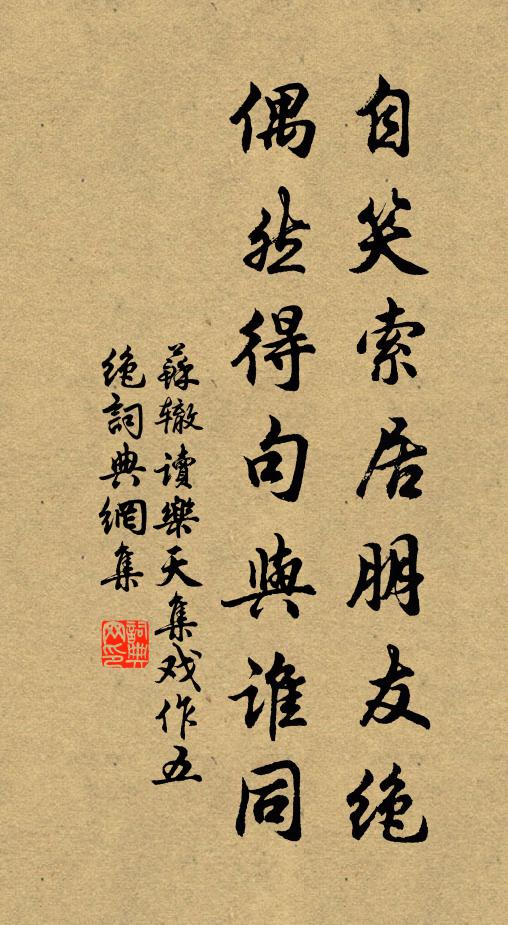 自笑索居朋友绝
偶然得句與谁同
蘇辙讀樂天集戏作五
绝詞典網集
詞典網印